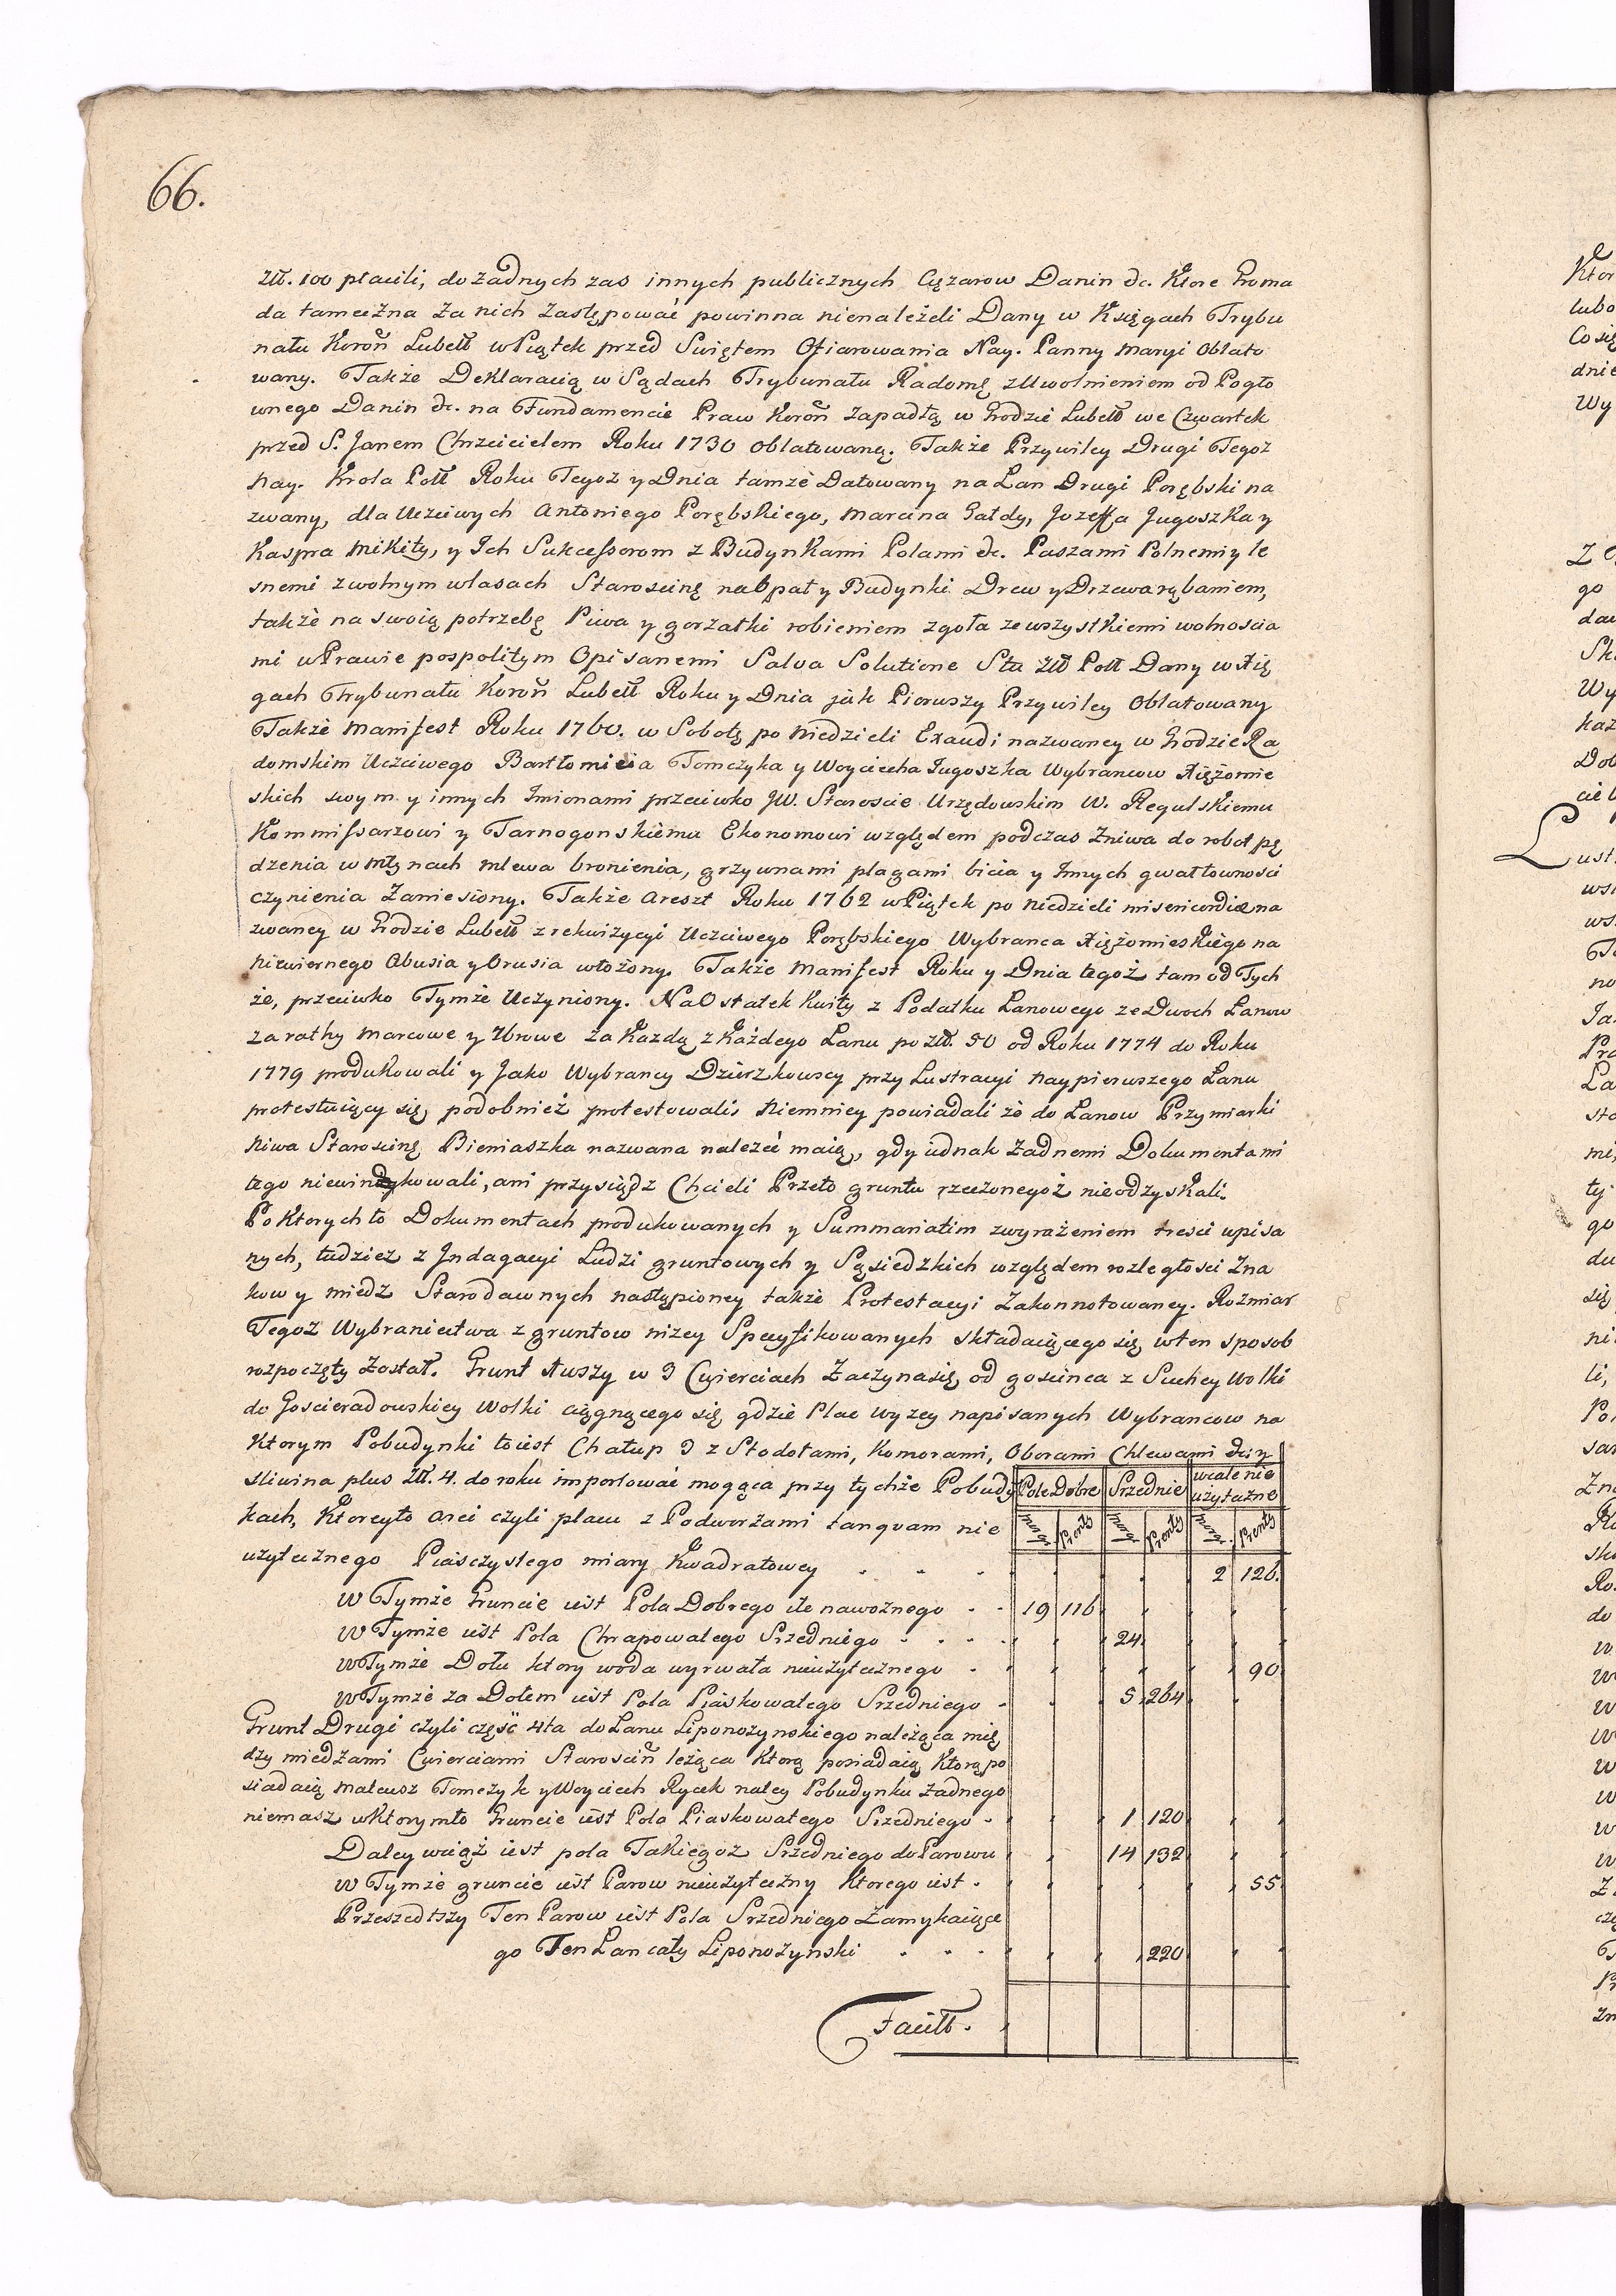 66.
Złł. 100 płacili, do żadnych zas innych publicznych Ciężarow Danin &c. Ktore Groma
da tameczna za nich Zastępować powinna nienależeli Dany w Księgach Trybu
nału Koroñ Lubell w Piątek przed Swiętem Ofiarowania Nay. Panny Maryi Oblato
wany. Także Deklaracią w Sądach Trybunału Radomę z Uwolnieniem od Pogło
wnego Danin &c. na Fundamencie Praw Koroñ zapadłą w Grodzie Lubell we Czwartek
przed S. Janem Chrzcicielem Roku 1730 Oblatowaną. Także Przywiley Drugi Tegoż
Nay. Krola Poll Roku Tegoż y Dnia tamże Datowany na Lan Drugi Porębski na
zwany, dla Uczciwych Antoniego Porębskiego, Marcina Gałdy, Jozeffa Jugoszka y
Kaspra Mikity, y Ich Sukcessorom z Budynkami Polami &c. Paszami Polnemi y le
snemi z wolnym w lasach Starościnę na Opał y Budynki Drew y Drzewa rąbaniem,
także na swoią potrzebę Piwa y gorzałki robieniem zgoła ze wszystkiemi wolnoscia
mi w Prawie pospolitym Opisanemi Salva Solutione Stu Złł Poll Dany w Xię
gach Trybunału Koroñ Lubell Roku y Dnia jak Pierwszy Przywiley Oblatowany
Także Manifest Roku 1760. w Sobotę po Niedzieli Exaudi nazwaney w Grodzie Ra
domskim Uczciwego Bartłomieia Tomczyka y Woyciecha Jugoszka Wybrancow Xiężomie
skich swym y innych Imionami przeciwko JW. Staroscie Urzędowskim W. Regulskiemu
Kommissarzowi y Tarnogonskiemu Ekonomowi względem podczas żniwa do robot pę
dzenia w Młynach mlewa bronienia, grzywnami plagami bicia y Innych gwałtownosci
czynienia Zaniesiony. Także Areszt Roku 1762 w Piątek po Niedzieli misericordiæ na
zwaney w Grodzie Lubell z rekwizycyi Uczciwego Porębskiego Wybranca Xiężomieskiego na
Niewiernego Abusia y Orusia włożony. Także Manifest Roku y Dnia tegoż tam od Tych
że, przeciwko Tymże Uczyniony. Na Ostatek Kwity z Podatku Lanowego ze Dwoch Lanow
za rathy Marcowe y 7browe za Kazdą z Każdego Lanu po złł. 50 od Roku 1774 do Roku
1779 produkowali y Jako Wybrancy Dzierzkowscy przy Lustracyi naypierwszego Lanu
protestuiący się podobnież protestowali, Niemniey powiadali że do Lanow Przymiarki
Niwa Starościnę Bieniaszka nazwana należeć maią, gdy iednak żadnemi Dokumentami
tego niewindykowali, ani przysiądz Chcieli Przeto gruntu rzeczonegoż nieodzyskali.
Po Ktorych to Dokumentach produkowanych y Summariatim zwyrażeniem tresci wpisa
nych, tudziez z Indagacyi Ludzi gruntowych y Sąsiedzkich względem rozległosci Zna
kow y miedz Starodawnych nastąpioney także Protestacyi Zakonnotowaney. Rozmiar
Tegoż Wybraniectwa z gruntow niżey Specyfikowanych składaiącego się, w ten sposob
rozpoczęty Został. Grunt Iwszy w 3 Cwierciach Zaczyna się od goscinca z Suchey Wolki
do Goscieradowskiey Wolki ciągnącego się gdzie Plac wyzey napisanych Wybrancow na
Ktorym Pobudynki to iest Chałup 3 z Stodołami, Komorami, Oborami Chlewami &c: y
Sliwina plus Złł. 4. do roku importować mogąca przy tychże Pobudy
kach, Ktoreyto Arei czyli placu z Podworzami tanquam nie
użytecznego Piaszczystego miary Kwadratowey
Pole Dobre Srzednie wcale nie użyteczne
Morg. Pręty Morg. Pręty Morg. Pręty
2 126.
W Tymże Gruncie iest Pola Dobrego ile nawoznego 19 116
W Tymże iest Pola Chrapowatego Srzedniego 24
W Tymże Dołu ktory woda wyrwała nieużytecznego 90
W Tymże za Dołem iest Pola Piaskowatego Srzedniego 5 264
Grunt Drugi czyli część 4ta do Lanu Liponożynskiego należąca mię
dzy miedzami Cwierciami Starosciñ leżąca Ktorą posiadaią Ktorą po
siadaią Mateusz Tomczyk y Woyciech Rycek na tey Pobudynku żadnego
niemasz w Ktorymto Gruncie iest Pola Piaskowatego Srzedniego 1 120
Daley wciąż iest pola Takiegoż Srzedniego do Parowu 14 132
W Tymże gruncie iest Parow nieużyteczny Ktorego iest 55
Przeszedłszy Ten Parow iest Pola Srzedniego Zamykaiące
go Ten Lan cały Liponożynski 220
Facitt.